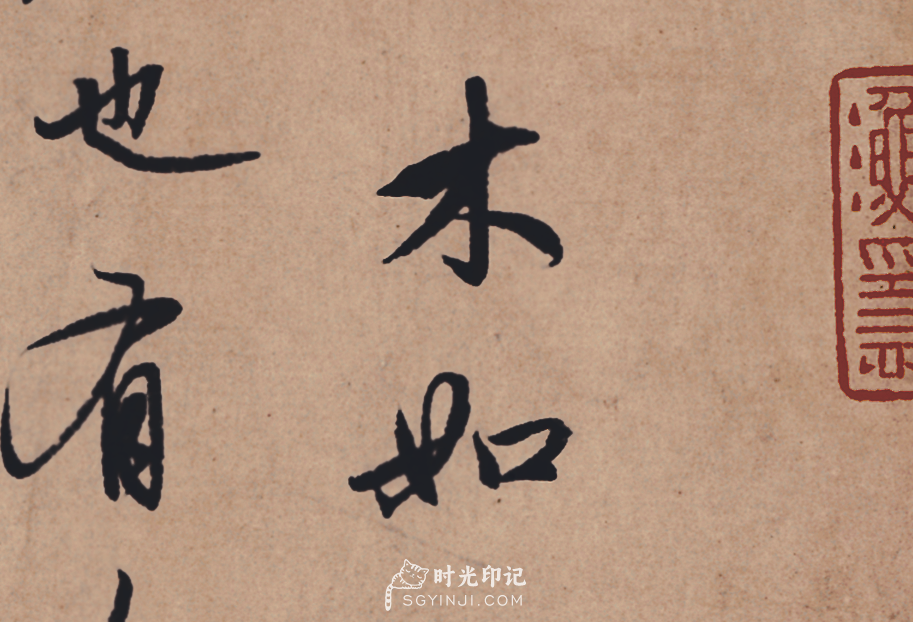 木如
也有
时光印记
SGYINJI.COM